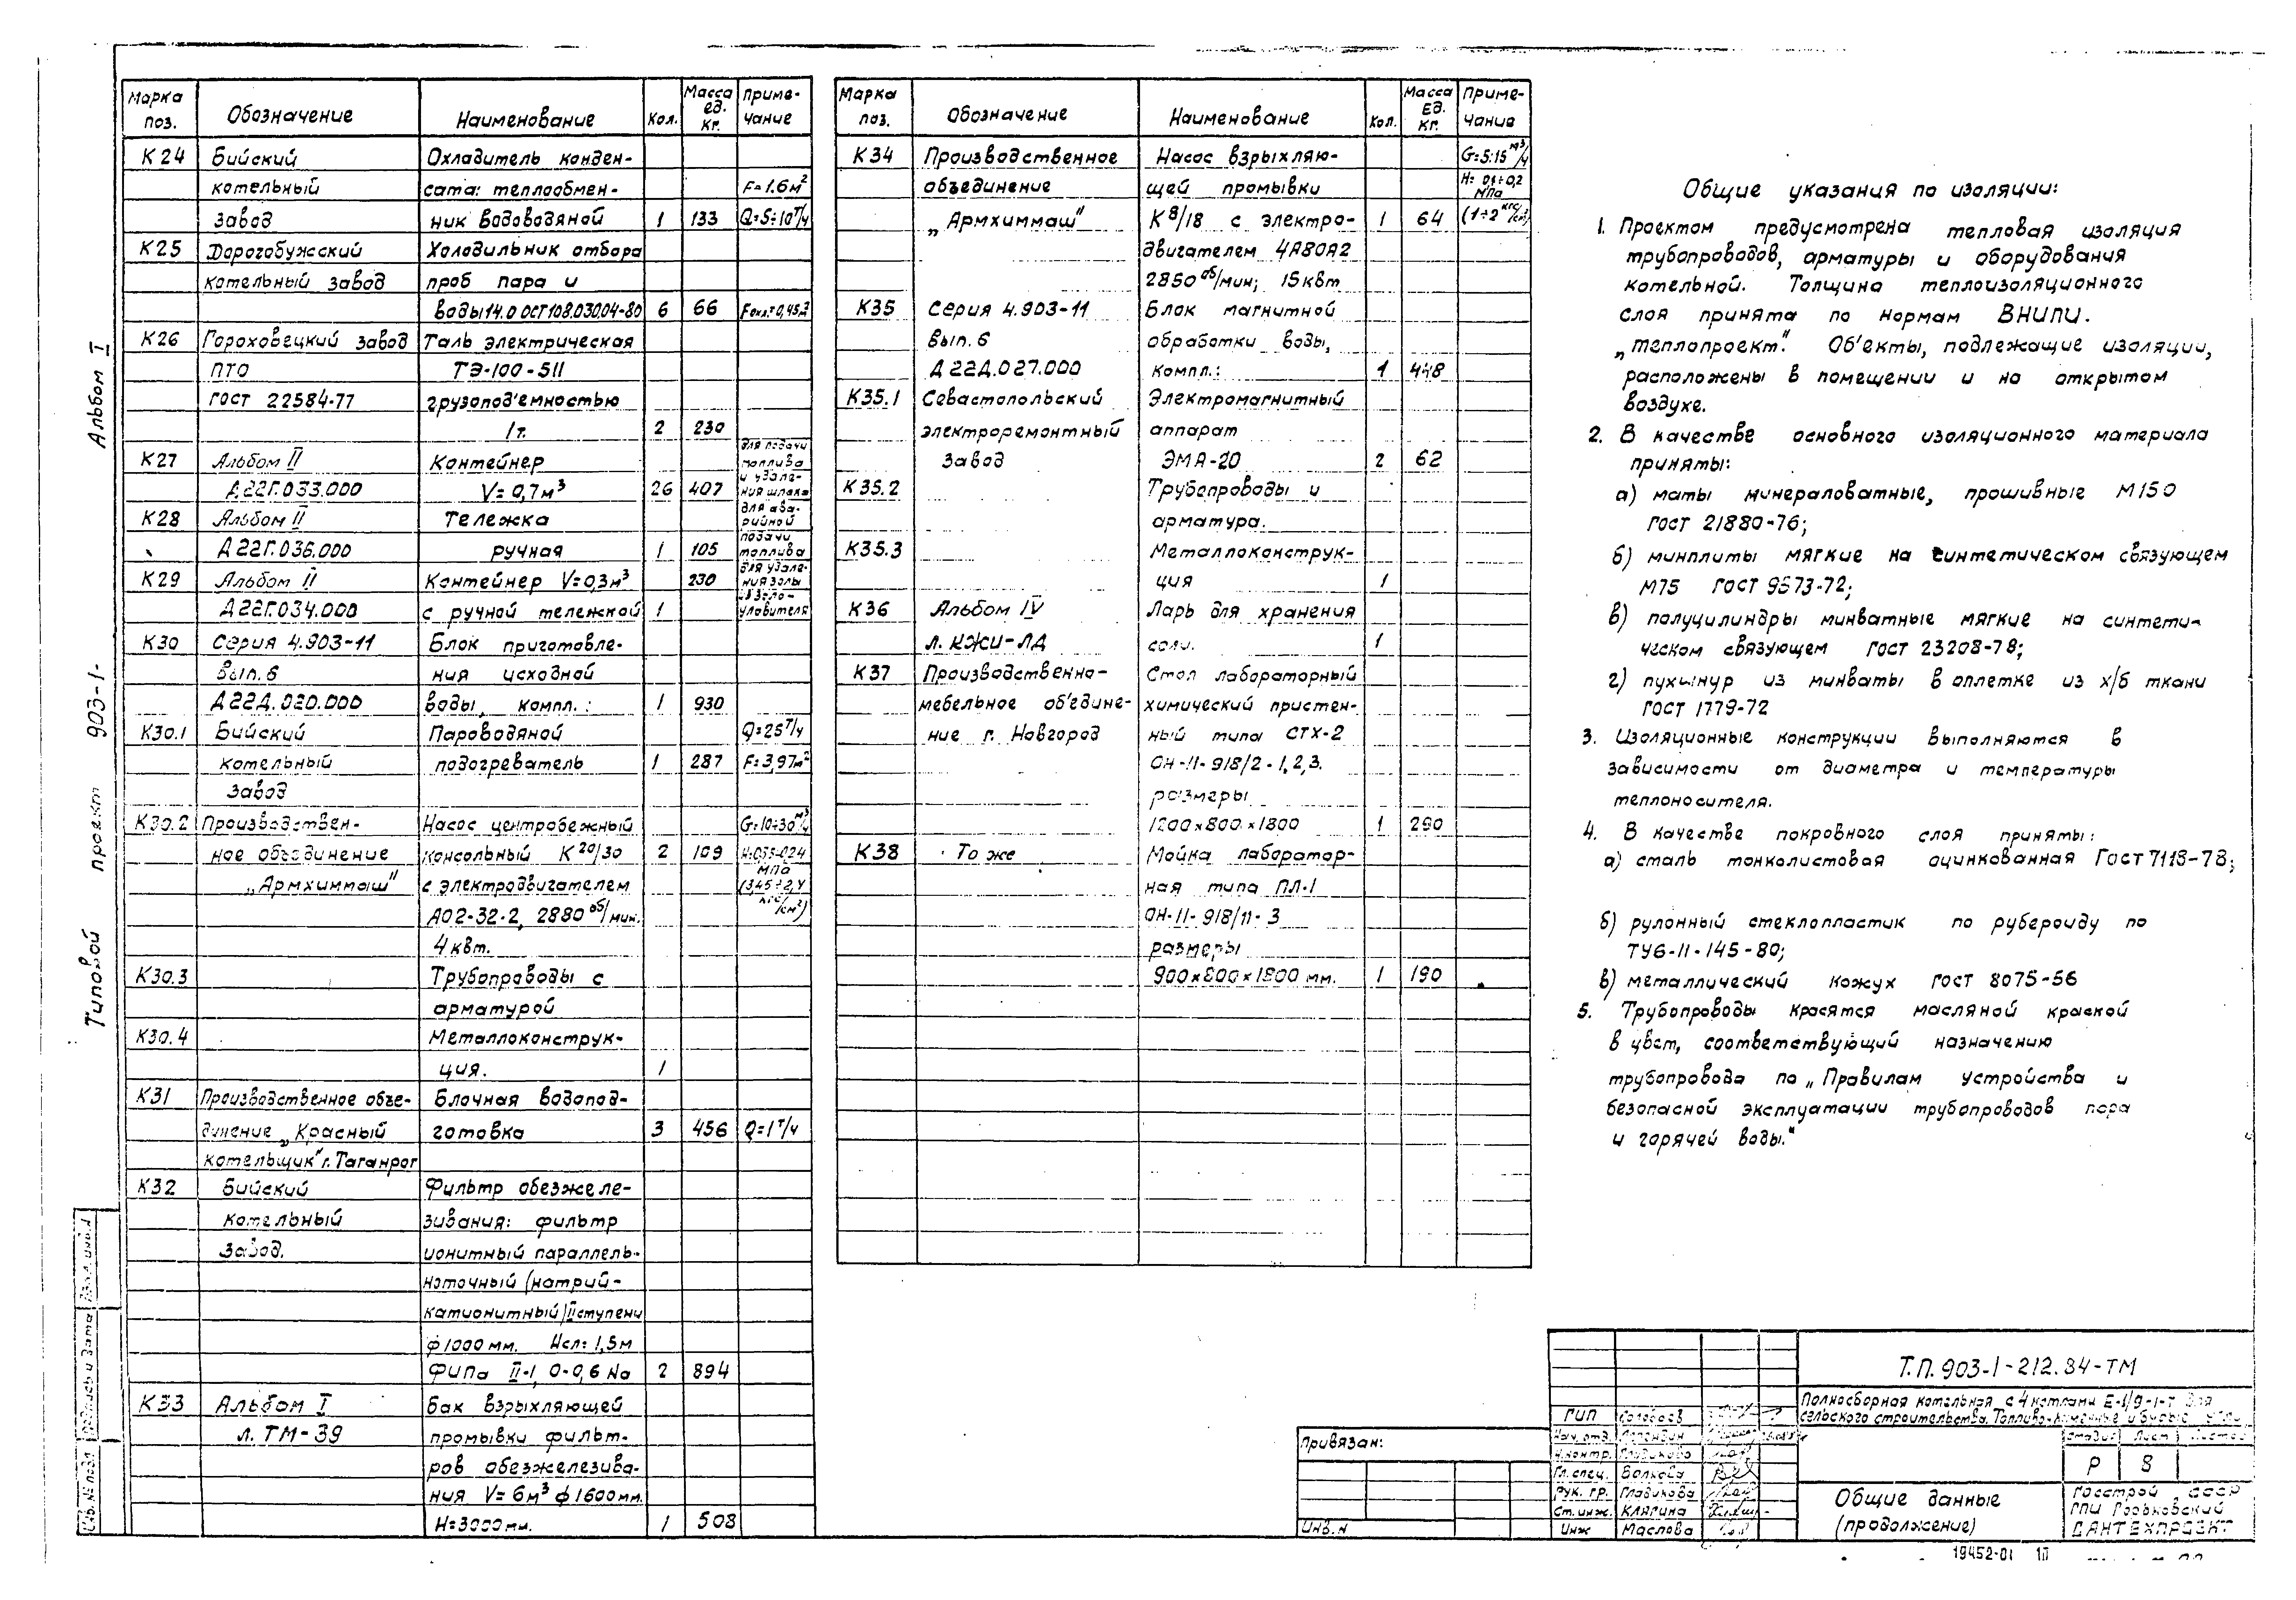 Альбом I
Типовой проект 903-1-
Марка поз. Обозначение Наименование Кол. Масса ед. кг. Приме-чание
К24 Бийский Охладитель конден-
котельный сата: теплообмен- F=1.6м²
завод ник водоводяной 1 133 Q=5÷10т/ч
К25 Дорогобужский Холодильник отбора
котельный завод проб пара и
воды 14.0 ОСТ108.030.04-80 6 66 Fохл.=0,45м²
К26 Гороховецкий завод Таль электрическая
ПТО ТЭ-100-511
ГОСТ 22584-77 грузопод'емностью
1т. 2 230
К27 Альбом II Контейнер для подачи топлива
Д22Г.033.000 V=0,7м³ 26 407 и удале-ния шлака
К28 Альбом II Тележка для ава-рийной
Д22Г.036.000 ручная 1 105 подачи топлива
К29 Альбом II Контейнер V=0,3м³ 230 для удале-ния золы
Д22Г.034.000 с ручной тележкой 1 из золо-уловителя
К30 Серия 4.903-11 Блок приготовле-
Вып. 6 ния исходной
Д22Д.020.000 воды, компл.: 1 930
К30.1 Бийский Пароводяной Q=25т/ч
котельный подогреватель 1 287 F=3,97м²
завод
К30.2 Производствен- Насос центробежный G=10÷30м³/ч
ное объединение консольный К20/30 2 109
„Армхиммаш" с электродвигателем МПа (3,45÷2,4
АО2-32-2, 2880 об/мин. кгс/см²)
4 квт.
К30.3 Трубопроводы с
арматурой
К30.4 Металлоконструк-
ция. 1
К31 Производственное объе- Блочная водопод-
динение „Красный готовка 3 456 Q=1т/ч
котельщик" г. Таганрог
К32 Бийский Фильтр обезжеле-
котельный зивания: фильтр
завод. ионитный параллель-
ноточный (натрий-
катионитный) II ступени
ф1000 мм. Нсл=1,5м
ФИПа II-1, 0-0,6 Na 2 894
К33 Альбом I бак взрыхляющей
л. ТМ-39 промывки фильт-
ров обезжелезива-
ния V=6м³ ф1600мм.
Н=3000мм. 1 508
Марка поз. Обозначение Наименование Кол. Масса Ед. кг. Приме-чание
К34 Производственное Насос взрыхляю- G=5÷15м³/ч
объединение щей промывки Н=0,1÷0,2 МПа
„Армхиммаш" К8/18 с электро- 1 64 (1÷2 кгс/см²)
двигателем 4А80А2
2850 об/мин; 15 квт
К35 Серия 4.903-11 Блок магнитной
Вып. 6 обработки воды,
Д22Д.027.000 компл.: 1 448
К35.1 Севастопольский Электромагнитный
электроремонтный аппарат
завод ЭМА-20 2 62
К35.2 Трубопроводы и
арматура.
К35.3 Металлоконструк-
ция 1
К36 Альбом IV Ларь для хранения
л. КЖИ-ЛД соли. 1
К37 Производственно- Стол лабораторный
мебельное об'едине- химический пристен-
ние г. Новгород ный типа СТХ-2
ОН-11-918/2-1,2,3.
размеры
1200×800×1800 1 290
К38 То же Мойка лаборатор-
ная типа ПЛ-1
ОН-11-918/11-3
размеры
900×800×1800 мм. 1 190
Общие указания по изоляции:
1. Проектом предусмотрена тепловая изоляция
трубопроводов, арматуры и оборудования
котельной. Толщина теплоизоляционного
слоя принята по нормам ВНИПИ.
„Теплопроект". Об'екты, подлежащие изоляции,
расположены в помещении и на открытом
воздухе.
2. В качестве основного изоляционного материала
приняты:
а) маты минераловатные, прошивные М150
ГОСТ 21880-76;
б) минплиты мягкие на синтетическом связующем
М75 ГОСТ 9573-72;
в) полуцилиндры минватные мягкие на синтети-
ческом связующем ГОСТ 23208-78;
г) пухшнур из минваты в оплетке из х/б ткани
ГОСТ 1779-72
3. Изоляционные конструкции выполняются в
зависимости от диаметра и температуры
теплоносителя.
4. В качестве покровного слоя приняты:
а) сталь тонколистовая оцинкованная ГОСТ 7118-78;
б) рулонный стеклопластик по рубероиду по
ТУ6-11-145-80;
в) металлический кожух ГОСТ 8075-56
5. Трубопроводы красятся масляной краской
в цвет, соответствующий назначению
трубопровода по „Правилам устройства и
безопасной эксплуатации трубопроводов пара
и горячей воды."
Привязан:
Инв. N
Т.П. 903-1-212.84-ТМ
Полносборная котельная с 4 котлами Е-1/9-1-Т для
сельского строительства. Топливо-каменные и бурые угли.
ГИП Соловьев
Нач. отд.
Н.контр. Гладикова
Гл. спец. Волкова
Рук. гр. Гладикова
Ст. инж. Клягина
Инж Маслова
Стадия Лист Листов
Р 8
Общие данные
(продолжение)
Госстрой СССР
ГПИ Горьковский
САНТЕХПРОЕКТ
Инв. № подл Подпись и дата Взам. инв. №
19452-01 10